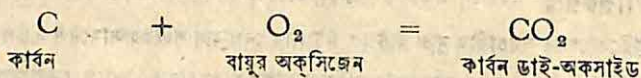 C + O₂ = CO₂
কার্বন বায়ুর অক্সিজেন কার্বন ডাই-অকসাইড